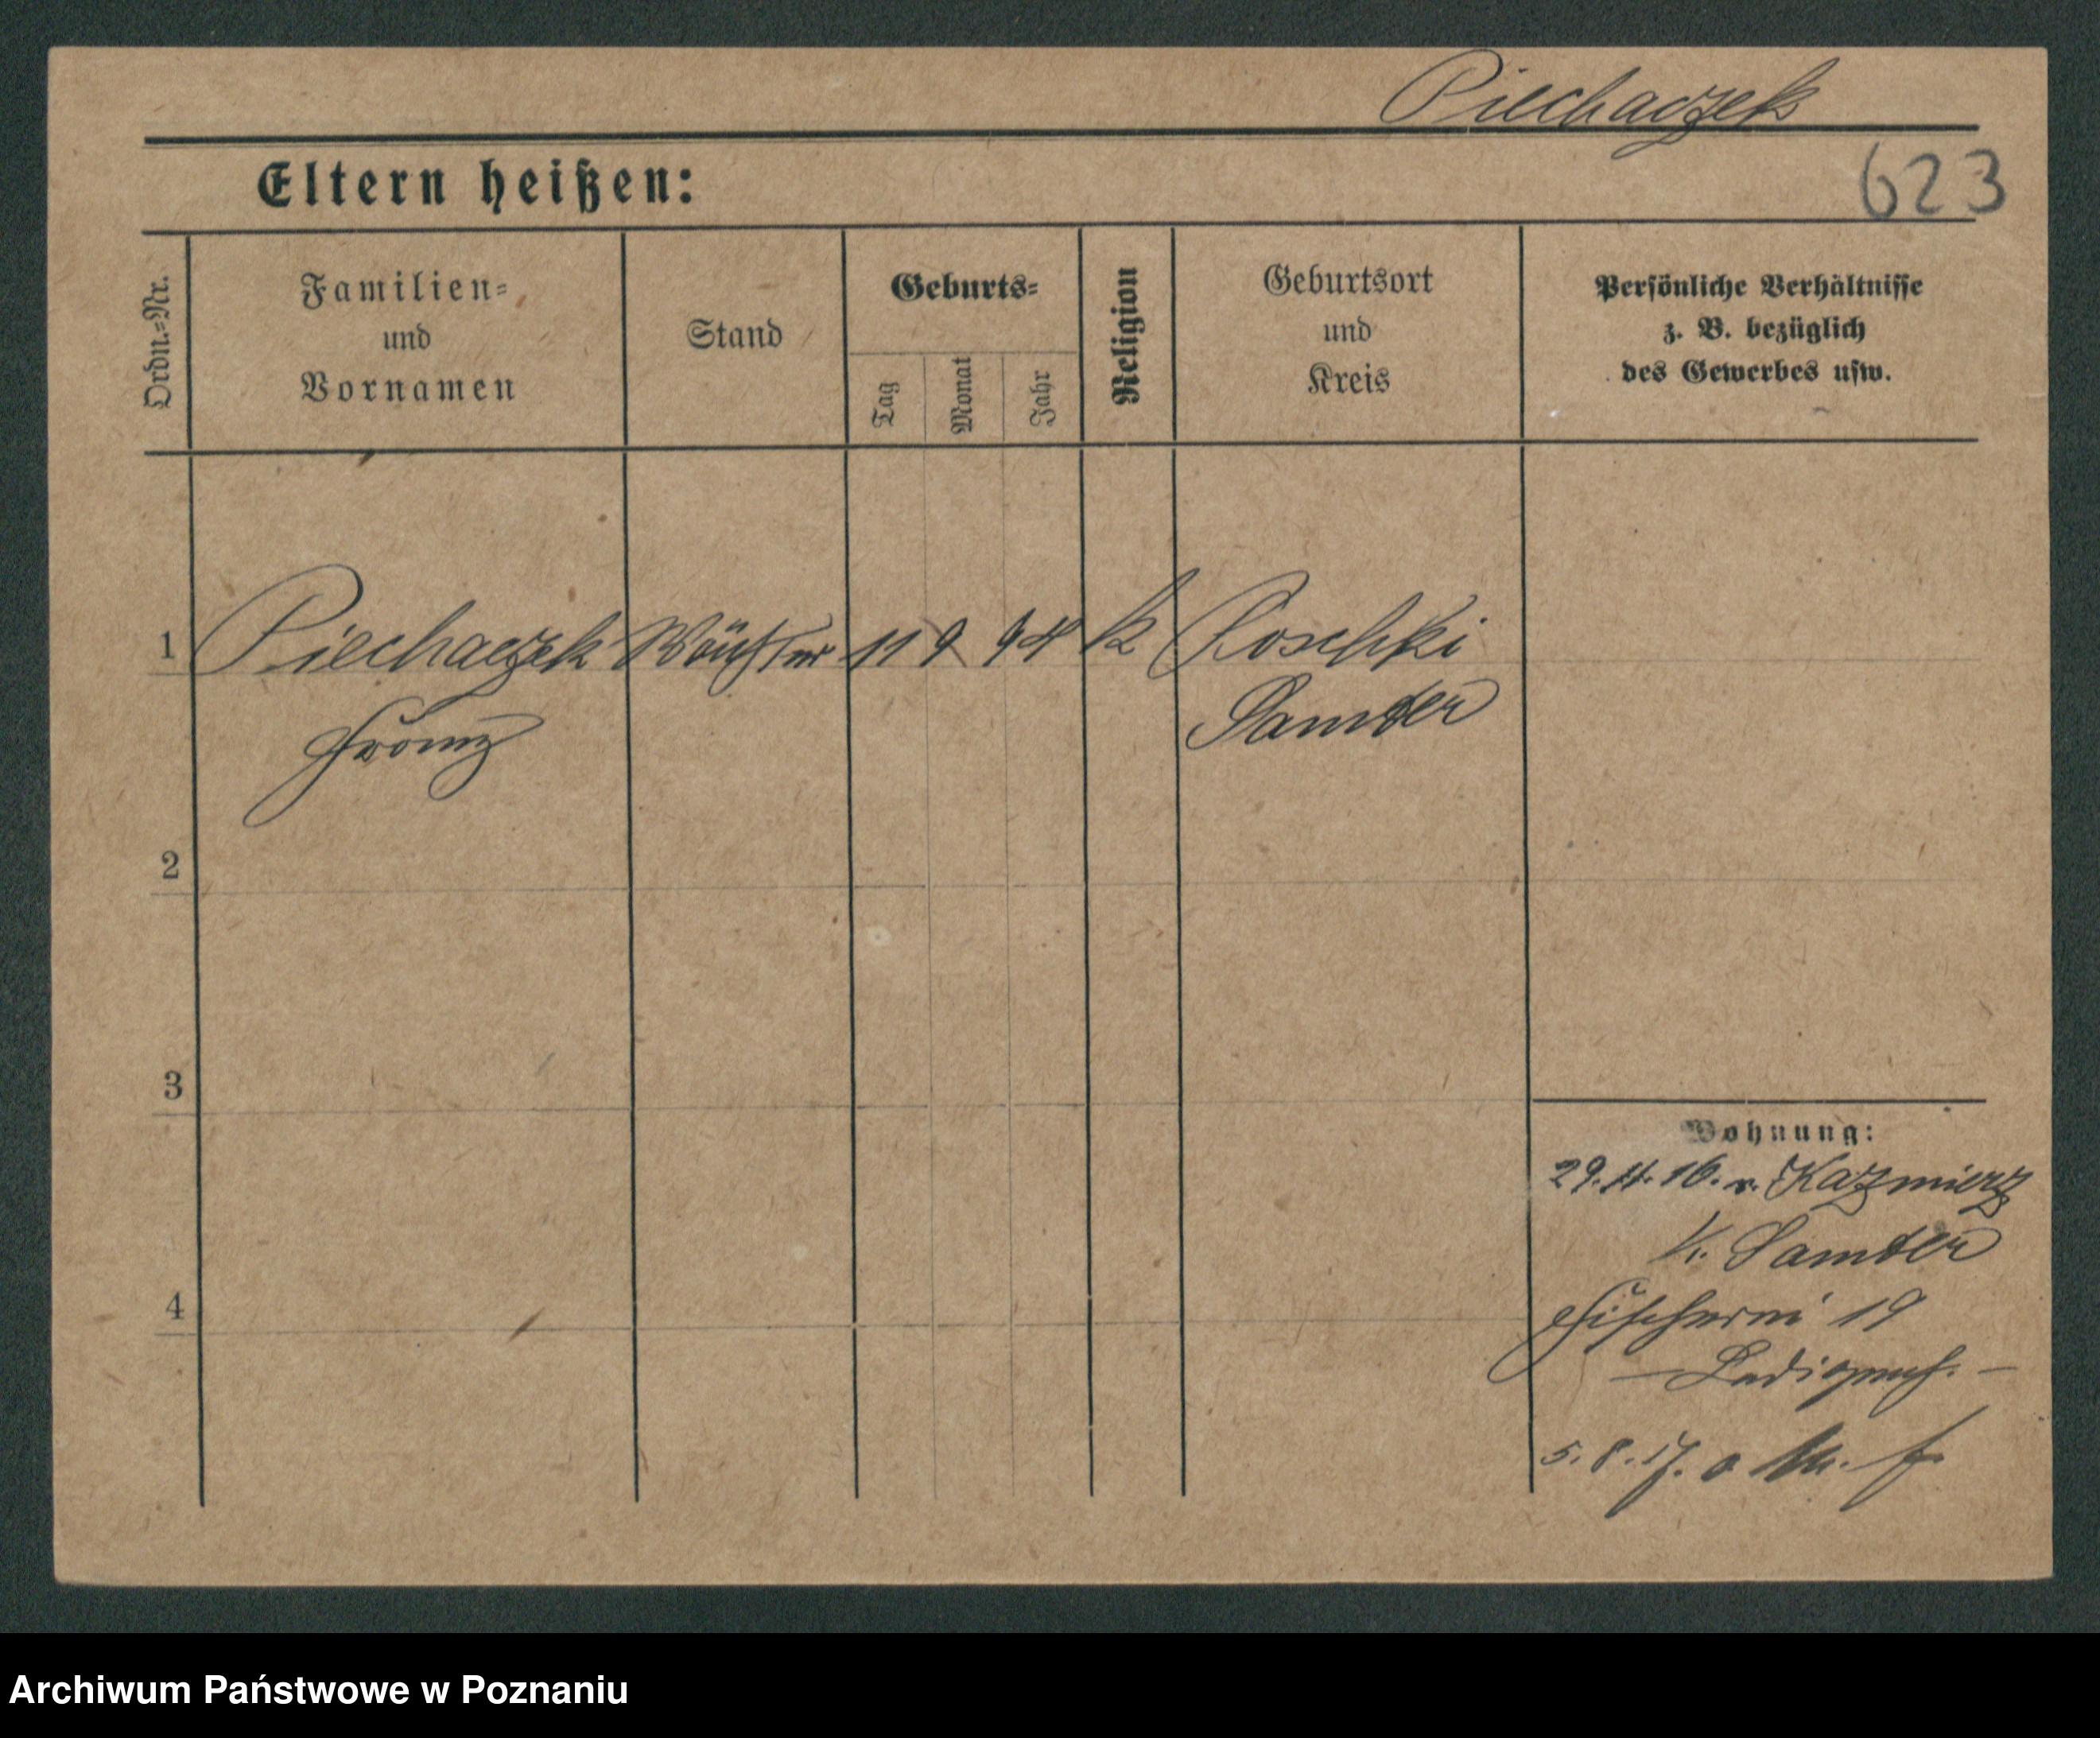 Piechaczek
Eltern heißen:
623
Ordn.-Nr.
Familien-
und
Vornamen
Stand
Geburts-
Tag
Monat
Jahr
Religion
Geburtsort
und
Kreis
Persönliche Verhältnisse
z. B. bezüglich
des Gewerbes usw.
1 Piechaczek Wächter 11 9 94 k Roschki
Franz Samter
2
3
4
Wohnung:
29. 11. 16. v. Kazmierz
K. Samter
Fischerei 19
5. 8. 17.
Archiwum Państwowe w Poznaniu